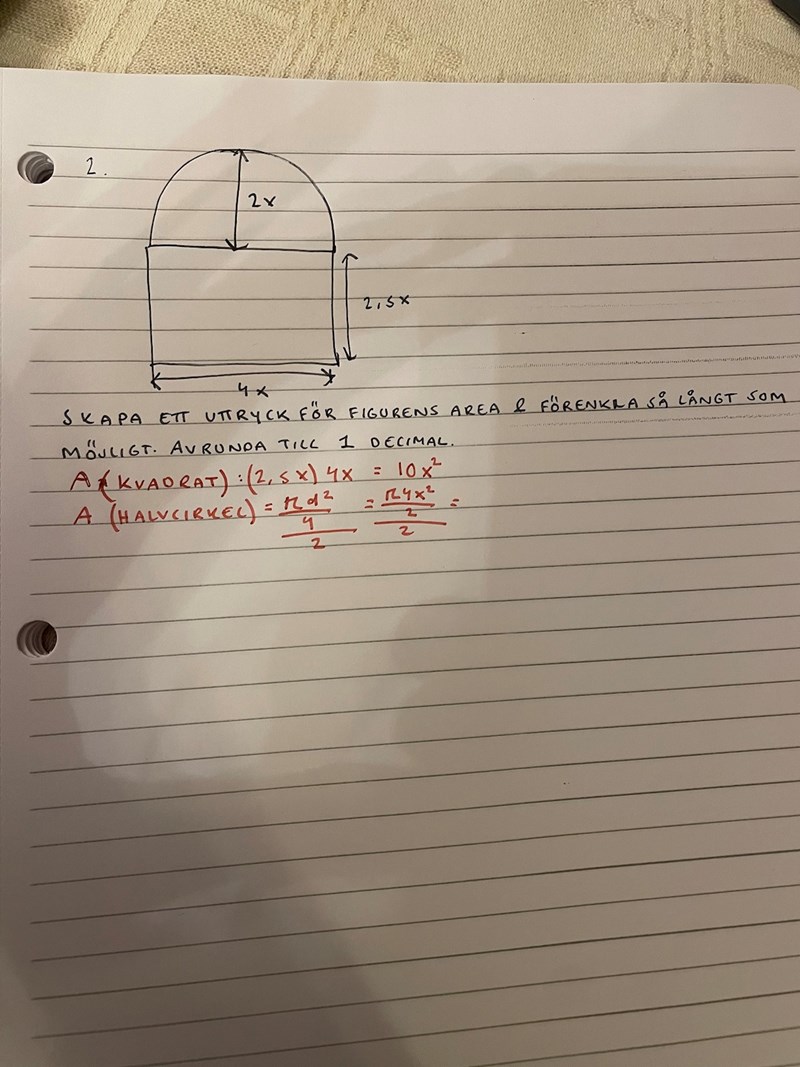 2.
2x
2,5x
4x
SKAPA ETT UTTRYCK FÖR FIGURENS AREA & FÖRENKLA SÅ LÅNGT SOM
MÖJLIGT. AVRUNDA TILL 1 DECIMAL.
A (KVADRAT): (2,5x) 4x = 10x²
A (HALVCIRKEL) = πd²/4/2 = π4x²/2/2 =